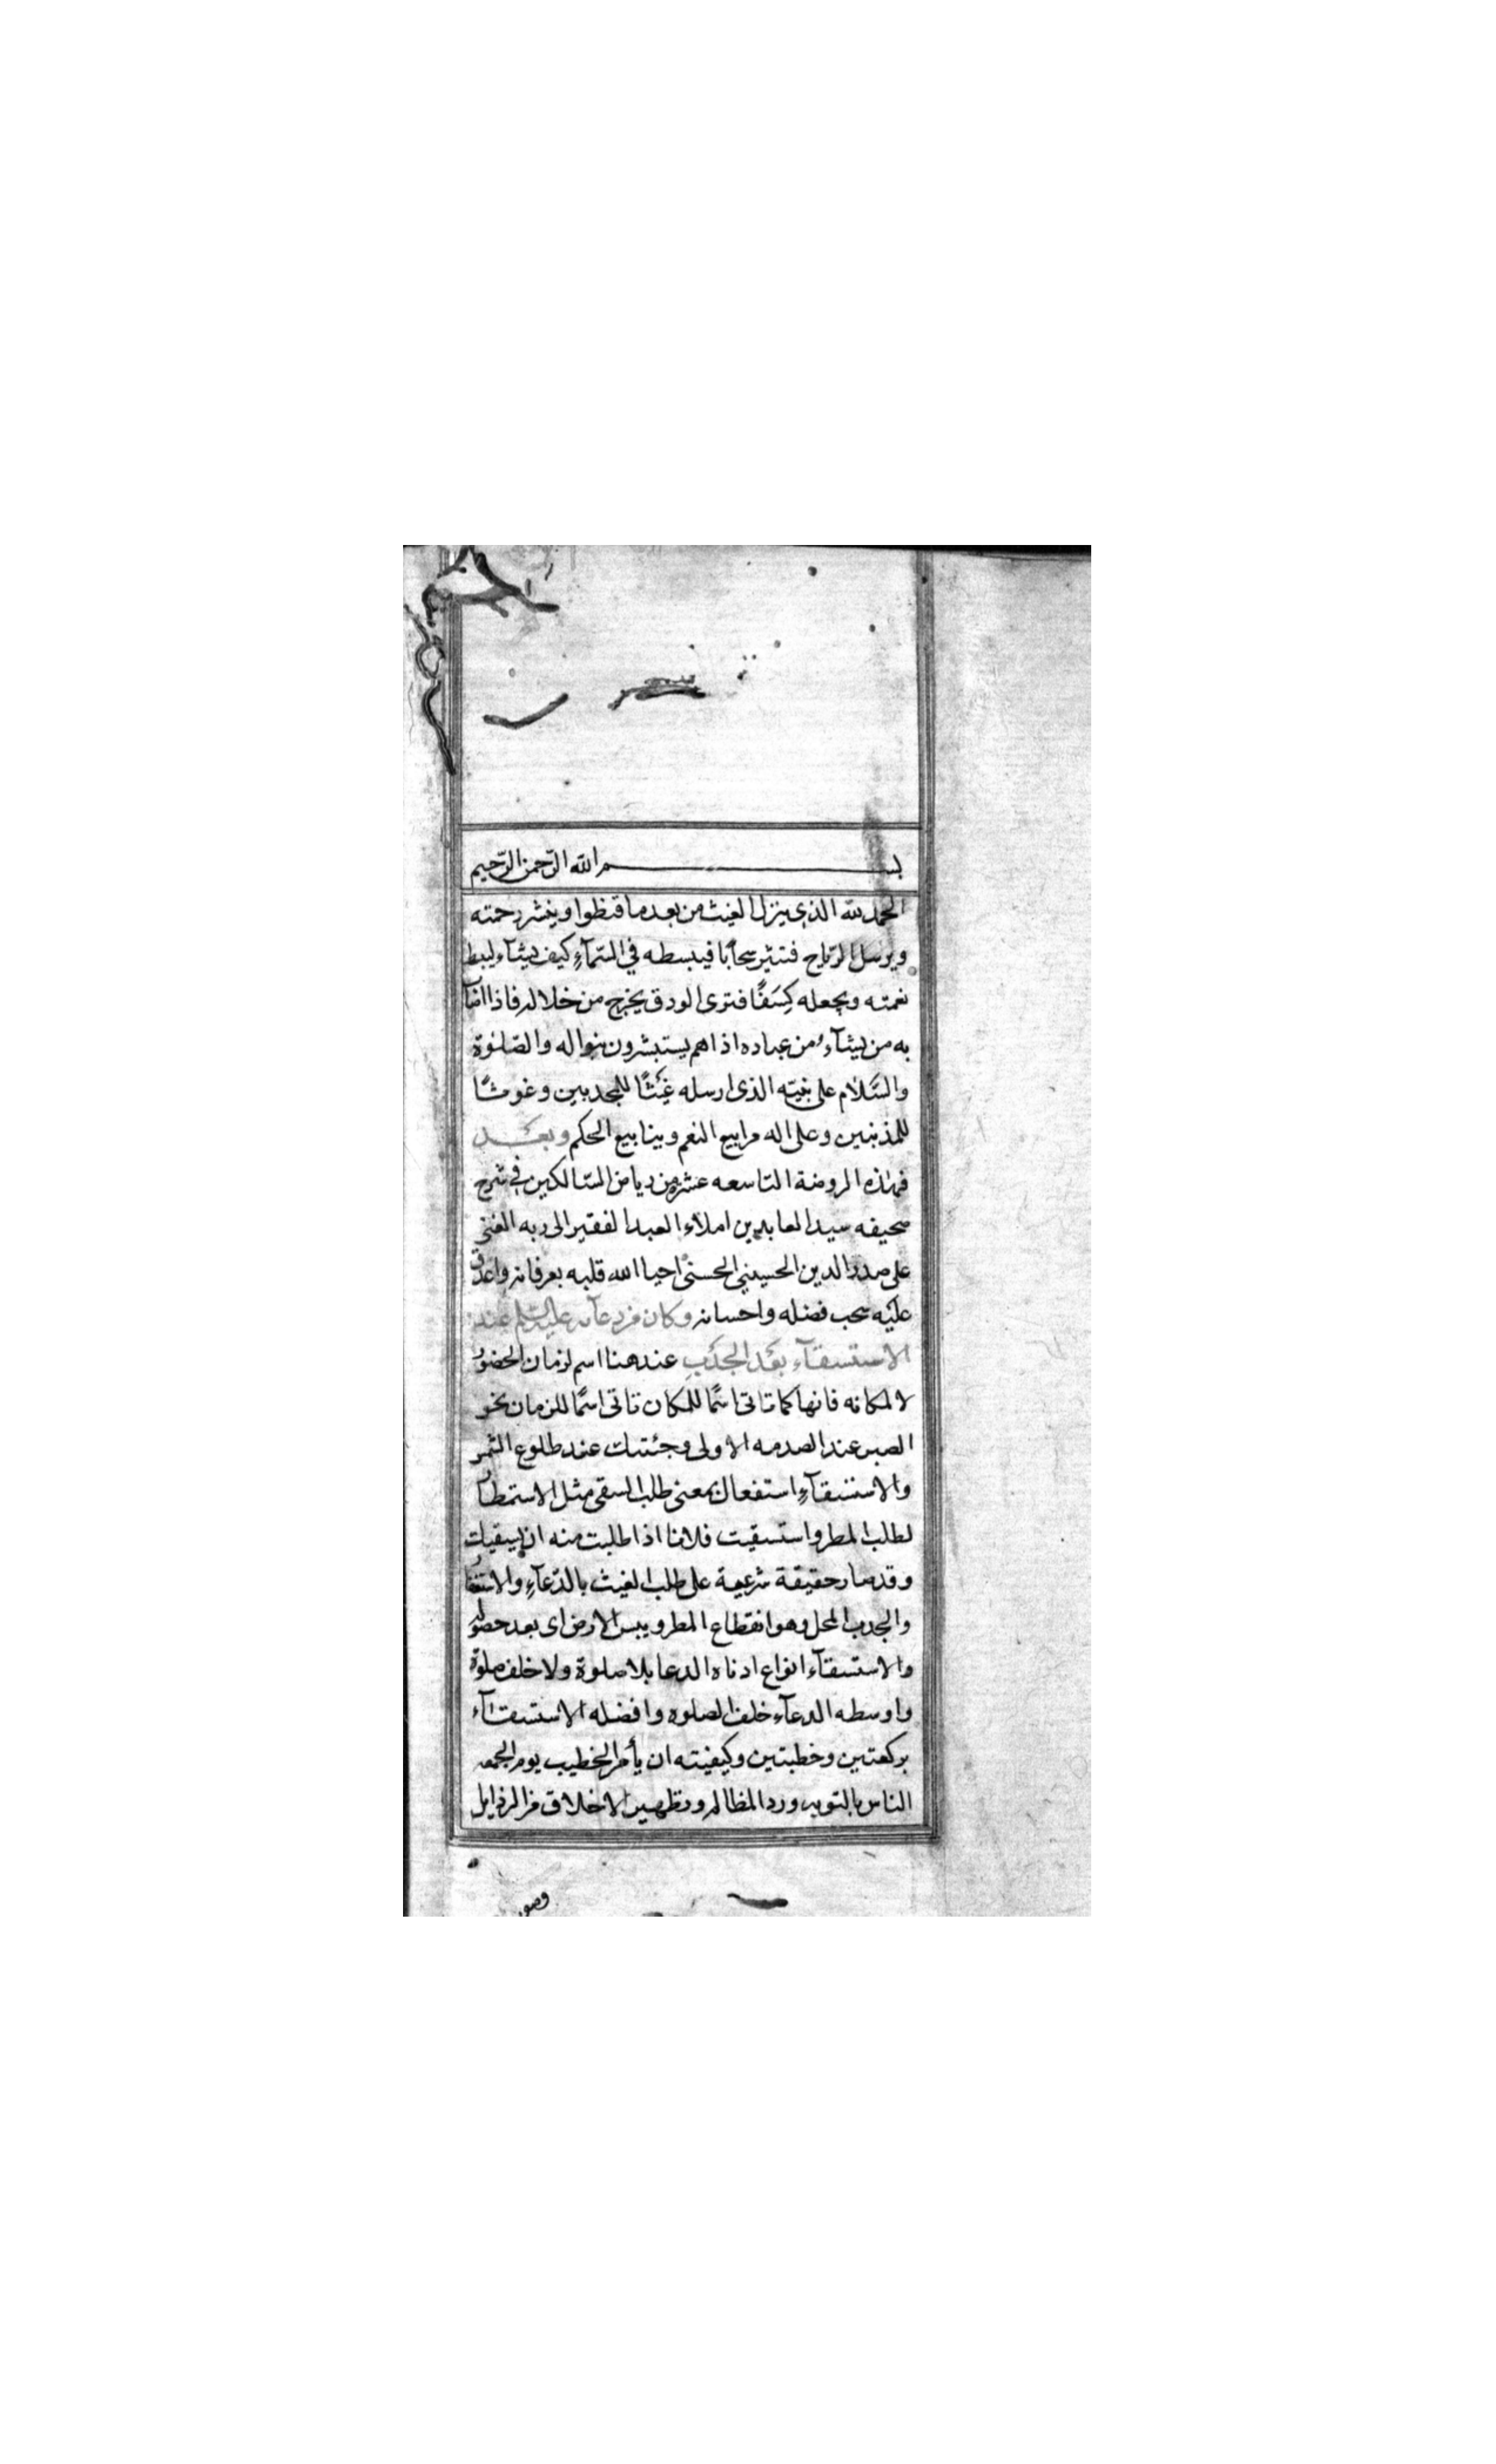 بسم الله الرّحمن الرّحيم
الحمد لله الذي ينزل الغيث من بعد ما قنطوا وينشر رحمته
ويرسل الرّياح فتثير سحابًا فيبسطه في السّمآءِ كيف يشآء ليبط
نعمته ويجعله كِسَفًا فترى الودق يخرج من خلاله فاذا اصاب
به من يشآء من عباده اذا هم يستبشرون بنواله والصّلوة
والسَّلام على نبيّه الذى ارسله غَيْثًا للمجدبين وغوثًا
للمذنبين وعلى اله مرابيع النعم وينابيع الحكم وبعد
فهذه الروضة التاسعه عشر من رياض السّالكين في شرح
صحيفه سيد العابدين املاء العبد الفقير الى ربه الغنى
على صدر الدين الحسينى الحسنى احيا الله قلبه بعرفانه واغدق
عليه سحب فضله واحسانه وكان من دعآئه عليه السّلم عند
الاستسقآء بعد الجدب عند هنا اسم لزمان الحضور
لا لمكانه فانها كما تاتى اسمًا للمكان تاتى اسمًا للزمان نحو
الصبر عند الصدمه الاولى وجئتك عند طلوع الشمس
والاستسقآءِ استفعال بمعنى طلب السقى مثل الاستمطار
لطلب المطر واستسقيت فلانا اذا طلبت منه ان يسقيك
وقد صار حقيقة شرعية على طلب الغيث بالدّعآءِ والاستغفار
والجدب المحل وهو انقطاع المطر ويبس الارض اى بعد حصوله
والاستسقآء انواع ادناه الدعا بلا صلوة ولا خلف صلوة
واوسطه الدعآء خلف الصلوه وافضله الاستسقآء
بركعتين وخطبتين وكيفيته ان يأمر الخطيب يوم الجمعه
الناس بالتوبه ورد المظالم وتطهير الاخلاق من الرذايل
وصو